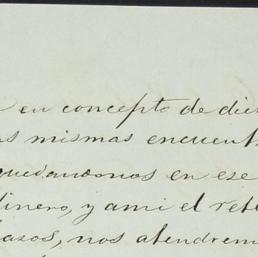 en concepto de die
as mismas encuent
quedandonos en ese
dinero, y ami el rete
lazos, nos atendrem